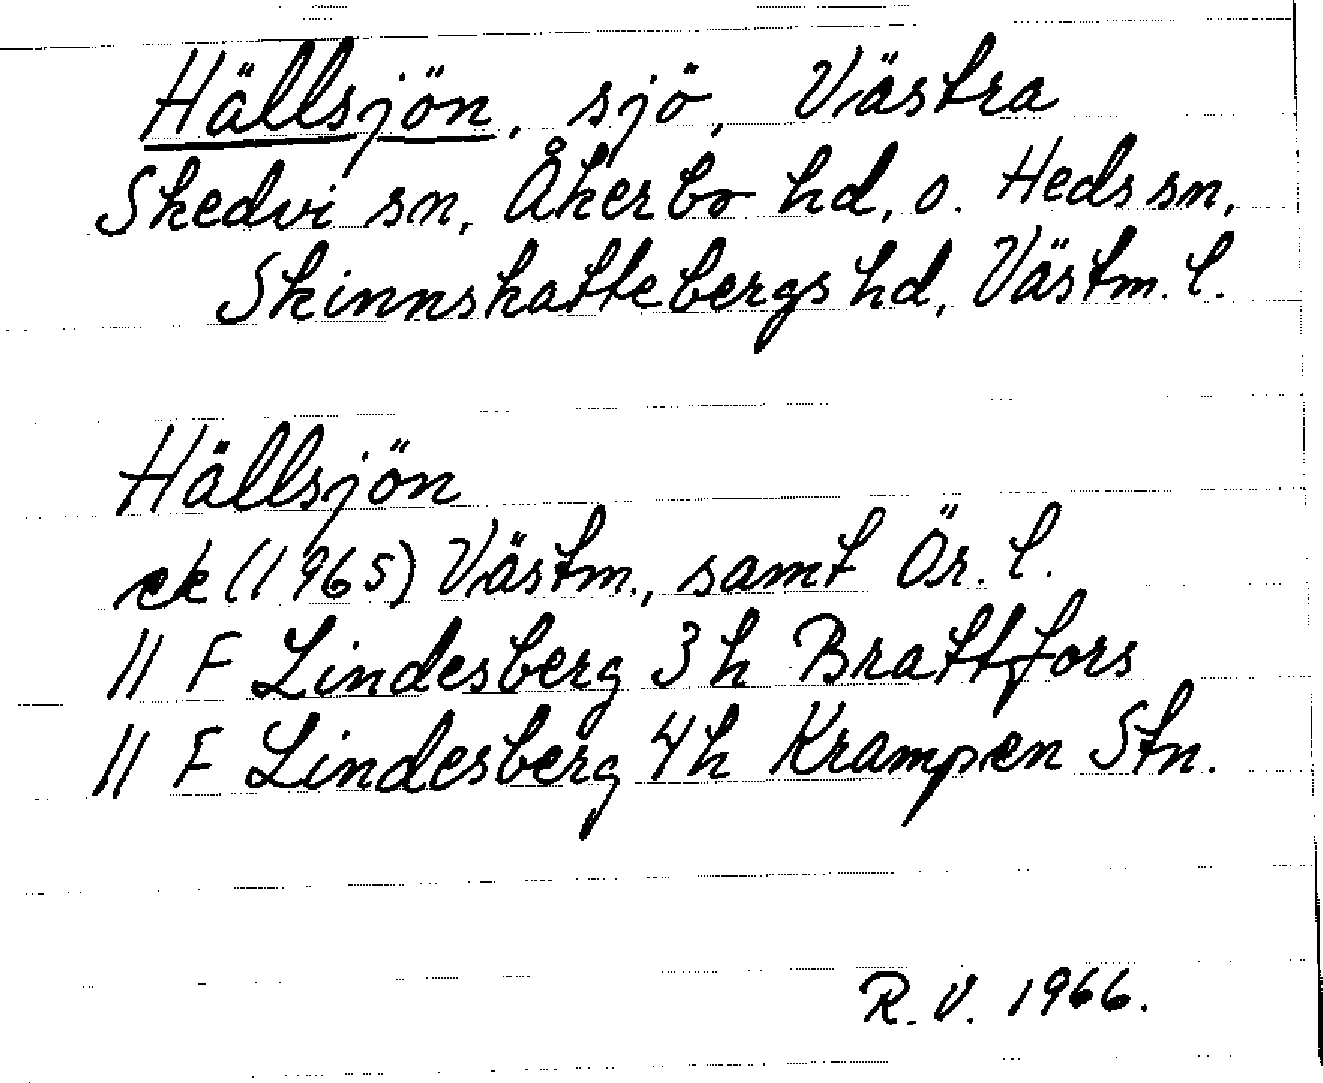 Hällsjön, sjö, Västra
Skedvi sn, Åkerbo hd, o. Heds sn,
Skinnskattebergs hd, Västm. l.
Hällsjön
ek (1965) Västm., samt Ör. l.
" F Lindesberg 3h Brattfors
" F Lindesberg 4h Krampen Stn.
R. V. 1966.